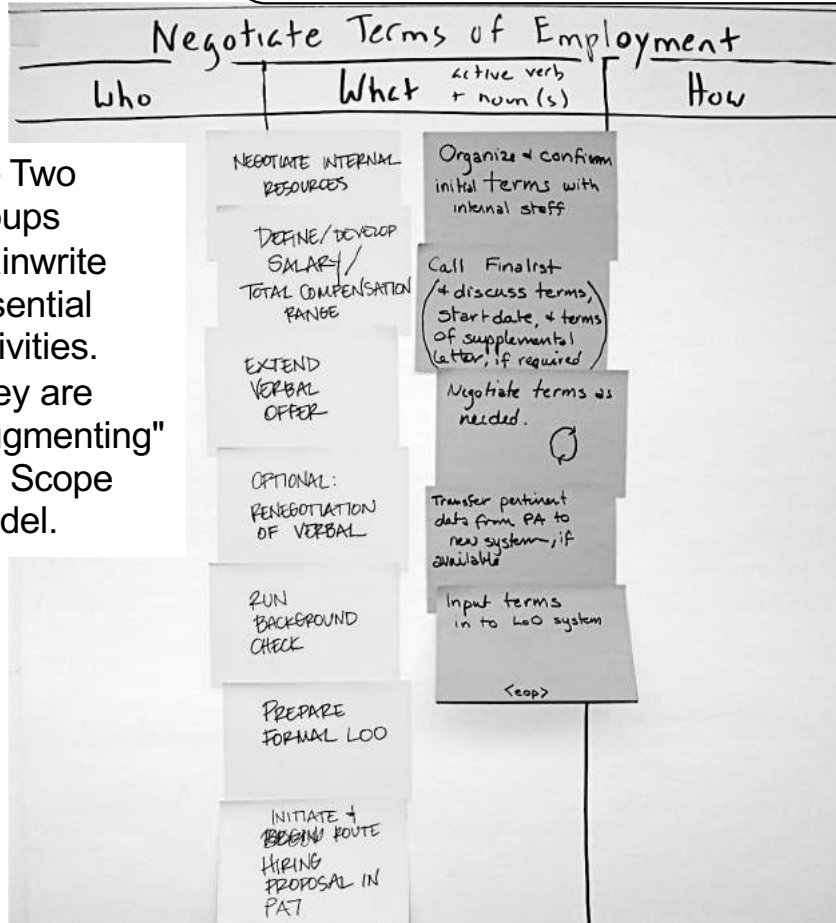 Negotiate Terms of Employment
Who
What
active verb
+ noun(s)
How
Two
oups
inwrite
sential
ivities.
ey are
gmenting"
Scope
del.
NEGOTIATE INTERNAL
RESOURCES
DEFINE/DEVELOP
SALARY/
TOTAL COMPENSATION
RANGE
EXTEND
VERBAL
OFFER
OPTIONAL:
RENEGOTIATION
OF VERBAL
RUN
BACKGROUND
CHECK
PREPARE
FORMAL LOO
INITIATE +
ROUTE
HIRING
PROPOSAL IN
PA7
Organize & confirm
initial terms with
internal staff
Call Finalist
(& discuss terms,
start date, & terms
of supplemental
letter, if required)
Negotiate terms as
needed.
Transfer pertinent
data from PA to
new system, if
available
Input terms
in to LoO system
<eop>